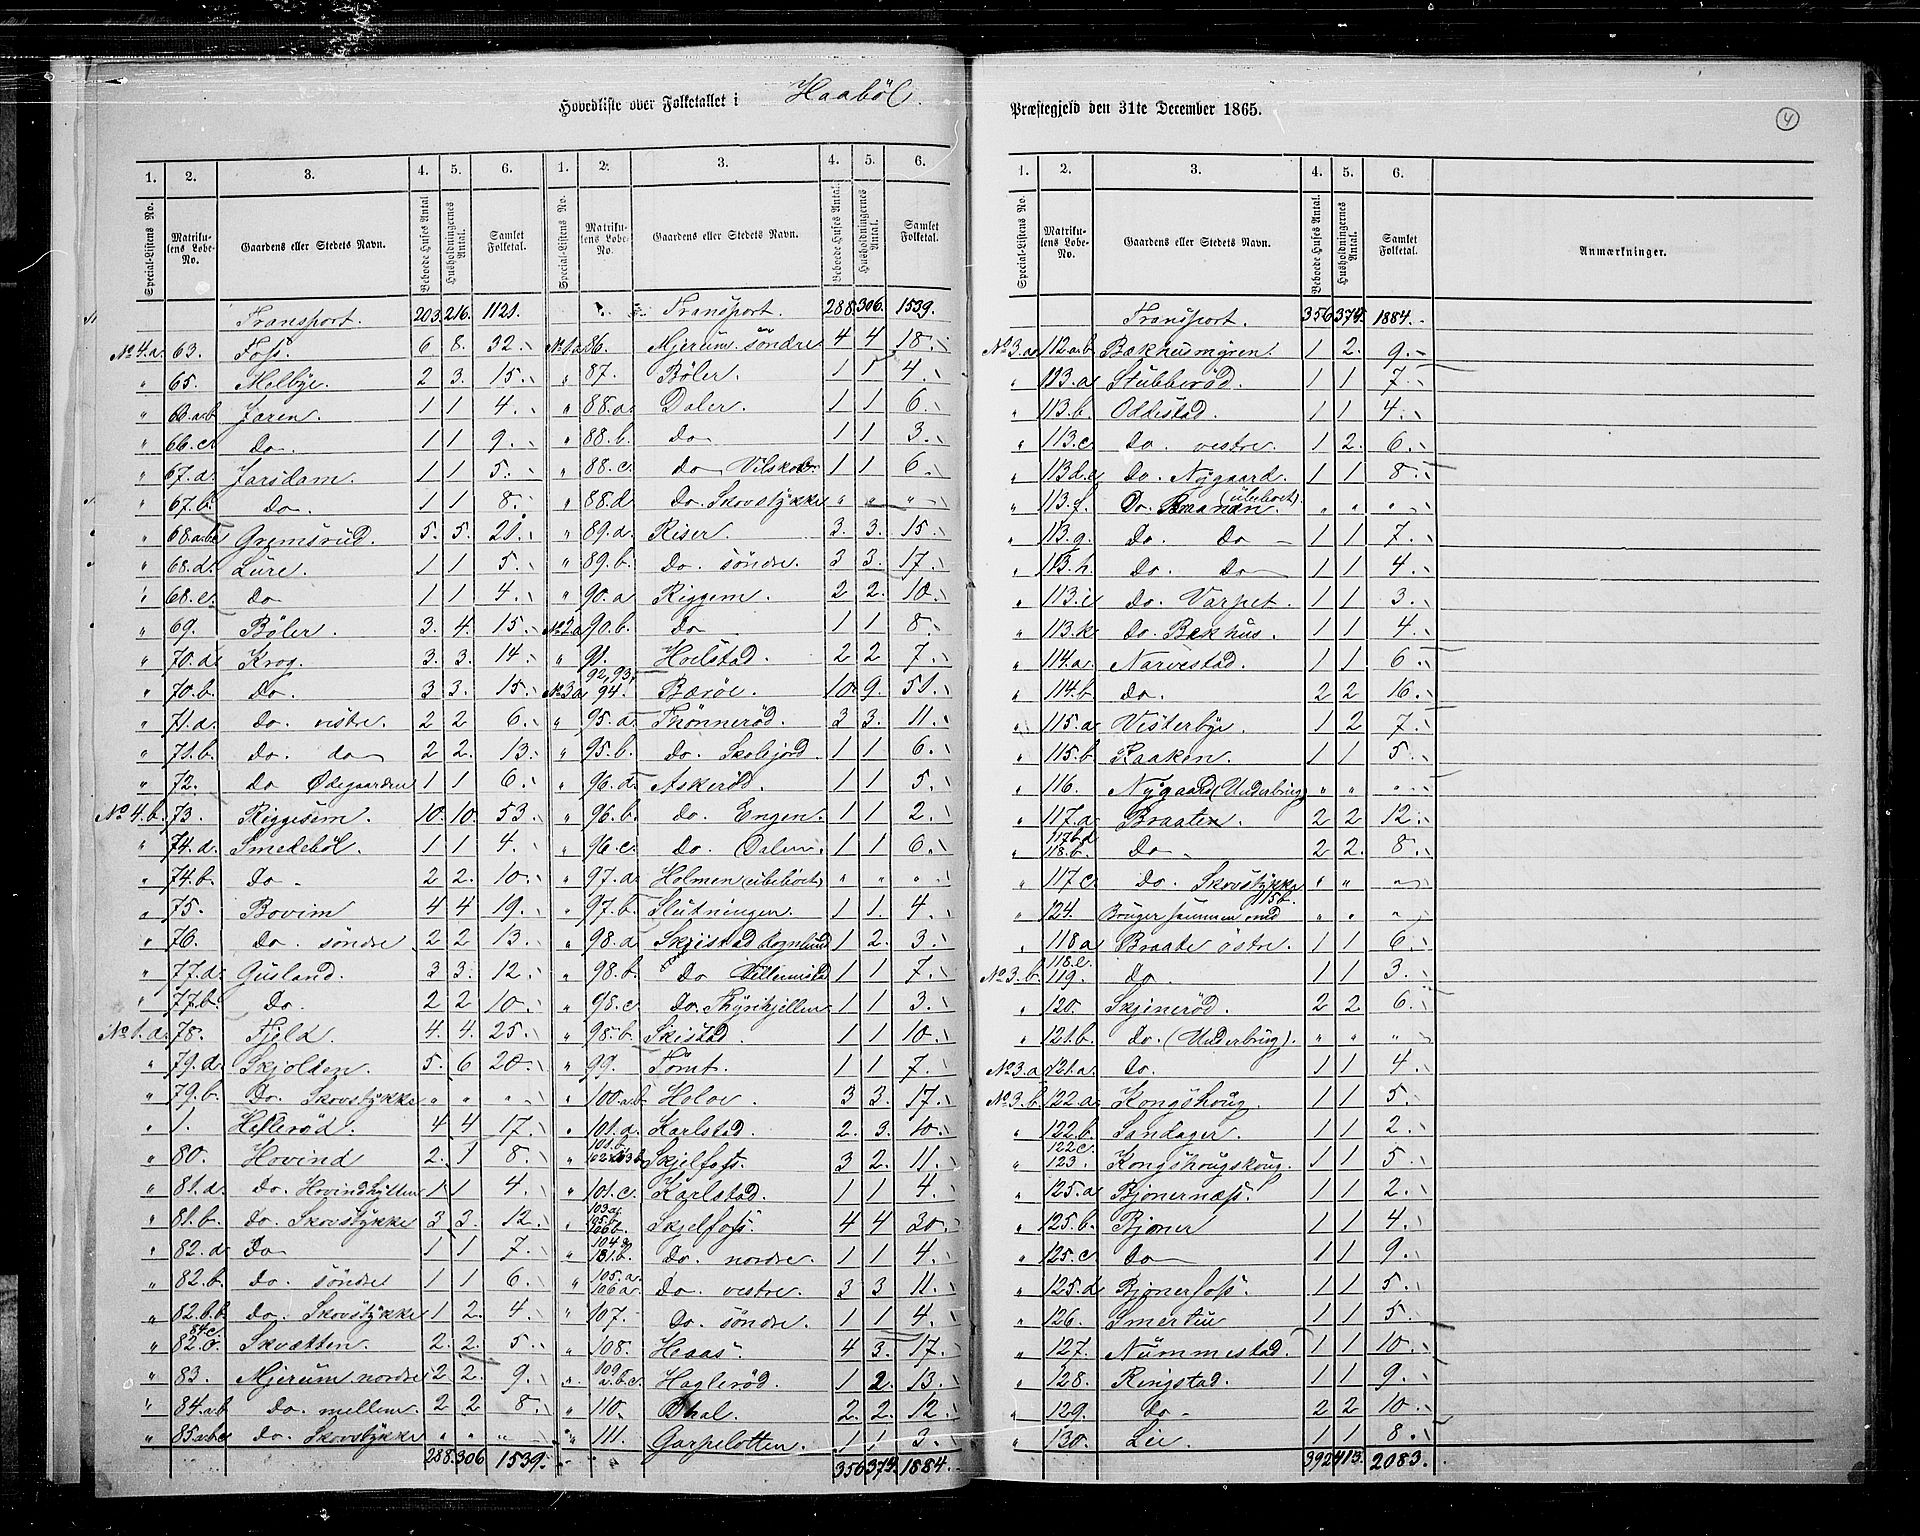 Hovedliste over Folketallet i Haaböl.
Præstegjeld den 31te December 1865.
4
1. 2. 3. 4. 5. 6.
Special-Listens No. Matrikulens Løbe-No. Gaardens eller Stedets Navn. Beboede Huses Antal. Husholdningernes Antal. Samlet Folketal.
Transport. 203. 216. 1121.
No 4.a. 63. Foss. 6 8. 32.
" 65. Melbye. 2 3. 15.
" 66.a.b. Jaren. 1 1 4.
" 66.c. Do. 1 1 9.
" 67.a. Jarsdam. 1 1 5.
" 67.b. Do. 1 1 8.
" 68.a.b.c. Gremsrud. 5. 5. 21.
" 68.d. Lure. 1 1 5.
" 68.e. Do 1 1 4.
" 69. Böler. 3. 4. 15.
" 70.a. Krog. 3. 3. 14.
" 70.b. Do. 3 3. 15.
" 71.a. Do. vestre. 2 2 6.
" 71.b. Do. do 2 2. 13.
" 72. Do Ødegaarden 1 1 6.
No 4.b. 73. Riggesem. 10. 10. 53.
" 74.a. Smedeböl. 1 1 4.
" 74.b. Do. 2 2. 10.
" 75. Bovim 4 4 19.
" 76. Do. söndre 2 2 13.
" 77.a. Gusland. 3 3. 12.
" 77.b. Do 2 2 10.
No 1.a. 78. Fjeld. 4. 4. 25.
" 79.a. Skjolden. 5. 6 20.
" 79.b. Do. Skovstykke " " "
" 1. Helleröd. 4 4 17.
" 80. Hovind 2. 1 8.
" 81.a. Do. Hovindhyllen 1 1 4.
" 81.b. Do. Skovstykke 3 3. 12.
" 82.a. Do 1 1 7.
" 82.b. Do. söndre 1 1 6.
" 82.b.b. Do. Skovstykke 1 2. 4.
" 82.c. 84.c. Skvætten. 2. 2. 5.
" 83. Mjerum nordre 2 2. 9.
" 84.a.b Do. mellem. 2 2 8.
" 85.a.b.c. Do. Skovstykke " " "
288. 306 1539.
1. 2. 3. 4. 5. 6.
Special-Listens No. Matrikulens Løbe-No. Gaardens eller Stedets Navn. Beboede Huses Antal. Husholdningernes Antal. Samlet Folketal.
Transport. 288. 306. 1539.
No 1.a. 86. Mjerum söndre 4 4 18.
" 87. Böler. 1 1 4.
" 88.a. Daler. 1 1 6.
" 88.b. do 1 1 3.
" 88.c. do 1 1 6.
" 88.d Do. Skovstykke " " "
" 89.a. Riser. 3. 3. 15.
" 89.b. Do. söndre. 3 3. 17.
" 90.a Riggem. 2 2. 10.
No 2.a 90.b. Do 1 1 8.
" 91. Hoelstad. 2 2 7.
No 3.a 92, 93, 94. Bæröe. 10. 9. 51.
" 95.a. Thönneröd. 3 3. 11.
" 95.b. Do. Skobjord 1 1 6.
" 96.a. Askeröd. 1 1 5.
" 96.b. do. Engen. 1 1 2.
" 96.c. Do. Dalen. 1 1 6.
" 97.a. Holmen (ubeboet) " " "
" 97.b. Slutningen. 1 1. 4.
" 98.a. Skjistad Rognlund 1 2. 3.
" 98.b. Do Villumstad 1 1 7.
" 98.c. Do. Thyrihjellen 1 1 3.
" 98.b. Skistad. 1 1 10.
" 99. Tomt. 1 1 7.
" 100.a.b Holoe. 3 3. 17.
" 101.a. Karlstad. 2. 3. 10.
" 101.b. 102. 103.b Skjelfoss. 3 2. 11.
" 101.c. Karlstad. 1 1 4.
" 103.a. 105.b. 106.b. Skjelfoss. 4 4 30.
" 104.a 131.b. Do. nordre. 1 1 4.
" 105.a. 106.a. Do. vestre. 3 3 11.
" 107. Do. söndre. 1 1 4.
" 108. Heaas. 4 3. 17.
" 109 a.b.c. Hagleröd. 1 2. 13.
" 110. Dal. 2. 2. 12.
" 111. Garpelotten. 1 1 3.
356 374. 1884.
1. 2. 3. 4. 5. 6.
Special-Listens No. Matrikulens Løbe-No. Gaardens eller Stedets Navn. Beboede Huses Antal. Husholdningernes Antal. Samlet Folketal. Anmærkninger.
Transport. 356 374. 1884.
No 3.a. 112.a.b. Bækhusmyren. 1 2. 9.
" 113.a. Stubberöd. 1 1 7.
" 113.b. Oddestad. 1 1 4.
" 113.c do. vestre. 1 2. 6.
" 113.d.e do. Nygaard. 1 1 8.
" 113.f. Do. Braanan. (ubeboet). " " "
" 113.g. do. Do 1 1 7.
" 113.h. do. Do 1 1 4.
" 113.i. do. Varpet. 1 1 3.
" 113.k. do. Bækhus. 1 1 4.
" 114.a. Narvestad. 1 1 6.
" 114.b do. 2 2 16.
" 115.a Vesterbye. 1 2 7.
" 115.b Raaken. 1 1 5.
" 116. Nygaard (Underbrug) " " "
" 117.a. Braaten. 2 2 12.
" 117.b.d 118.b. Do. 2 2. 8.
" 117.c. Do. Skovstykke " " "
" 124. Bruges sammen med 115b. " " "
" 118.a Braate östre. 1 1 6.
No 3.b. 118.c. 119. do. 1 1 3.
" 120. Skjeneröd. 2 2 6.
" 121.b. do. (Underbrug). " " "
No 3.a 121.a. do. 1 1 4
No 3.b. 122.a. Kongshoug. 1 1 5.
" 122.b. Sandager. 1 1 2.
" 122c. 123. Kongshougskoug. 1 1 5.
" 125.a Bjonernæss. 1 1 2.
" 125.b. Bjoner 1 1 4.
" 125.c do 1 1 9.
" 125.d Bjonerfoss. 1 1 5.
" 126. Smertu 1 1 5.
" 127. Nummestad. 1 1 10.
" 128. Ringstad. 1 1 9.
" 129. do. 2 2 10.
" 130. Lie. 1 1 8.
392 413. 2083.